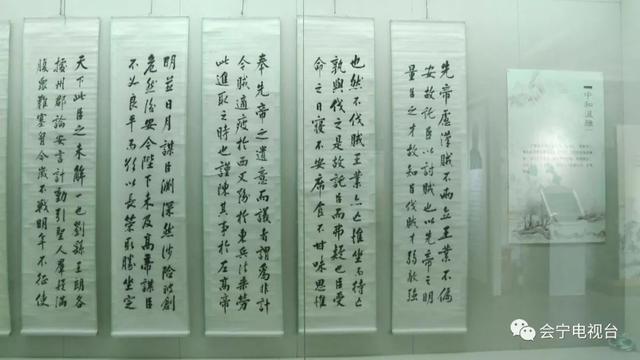 先帝慮漢賊不兩立王業不偏
安故託臣以討賊也以先帝之明
量臣之才故知臣伐賊才弱敵強
也然不伐賊王業亦亡惟坐而待亡
孰與伐之是故託臣而弗疑也臣受
命之日寢不安席食不甘味思惟
奉先帝之遺意而議者謂為非計
今賊適疲於西又務於東兵法乘勞
此進取之時也謹陳其事於左高帝
明並日月謀臣淵深然涉險被創
危然後安今陛下未及高帝謀臣
不如良平而欲以長策取勝坐定
天下此臣之未解一也劉繇王朗各
據州郡論安言計動引聖人羣疑滿
腹衆難塞胷今歲不戰明年不征使
中和
会宁电视台